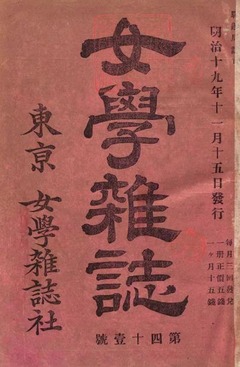 明治十九年十一月十五日發行
每月三回發兌
一册正價五錢
一ヶ月十五錢
女學雜誌
第四十壹號
東京 女學雜誌社